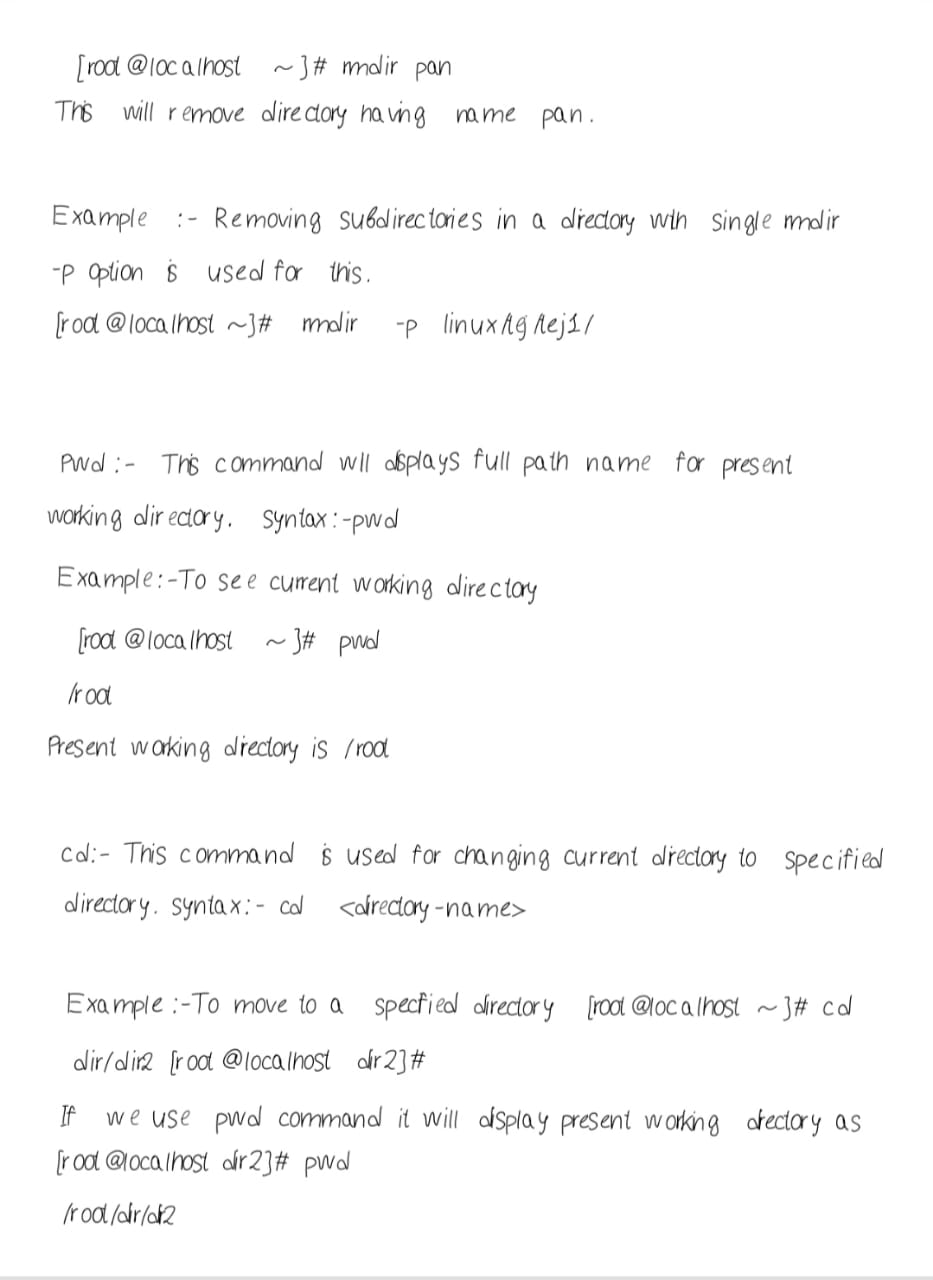 [root @localhost ~]# rmdir pan
This will remove directory having name pan.
Example :- Removing subdirectories in a directory with single rmdir
-p option is used for this.
[root @localhost ~]# rmdir -p
Pwd :- This command will displays full path name for present
working directory. Syntax:-pwd
Example:-To see current working directory
[root @localhost ~]# pwd
/root
Present working directory is /root
cd:- This command is used for changing current directory to specified
directory. syntax:- cd <directory-name>
Example :-To move to a specified directory [root @localhost ~]# cd
dir/dir2 [root @localhost dir2]#
If we use pwd command it will display present working directory as
[root @localhost dir2]# pwd
/root/dir/dir2